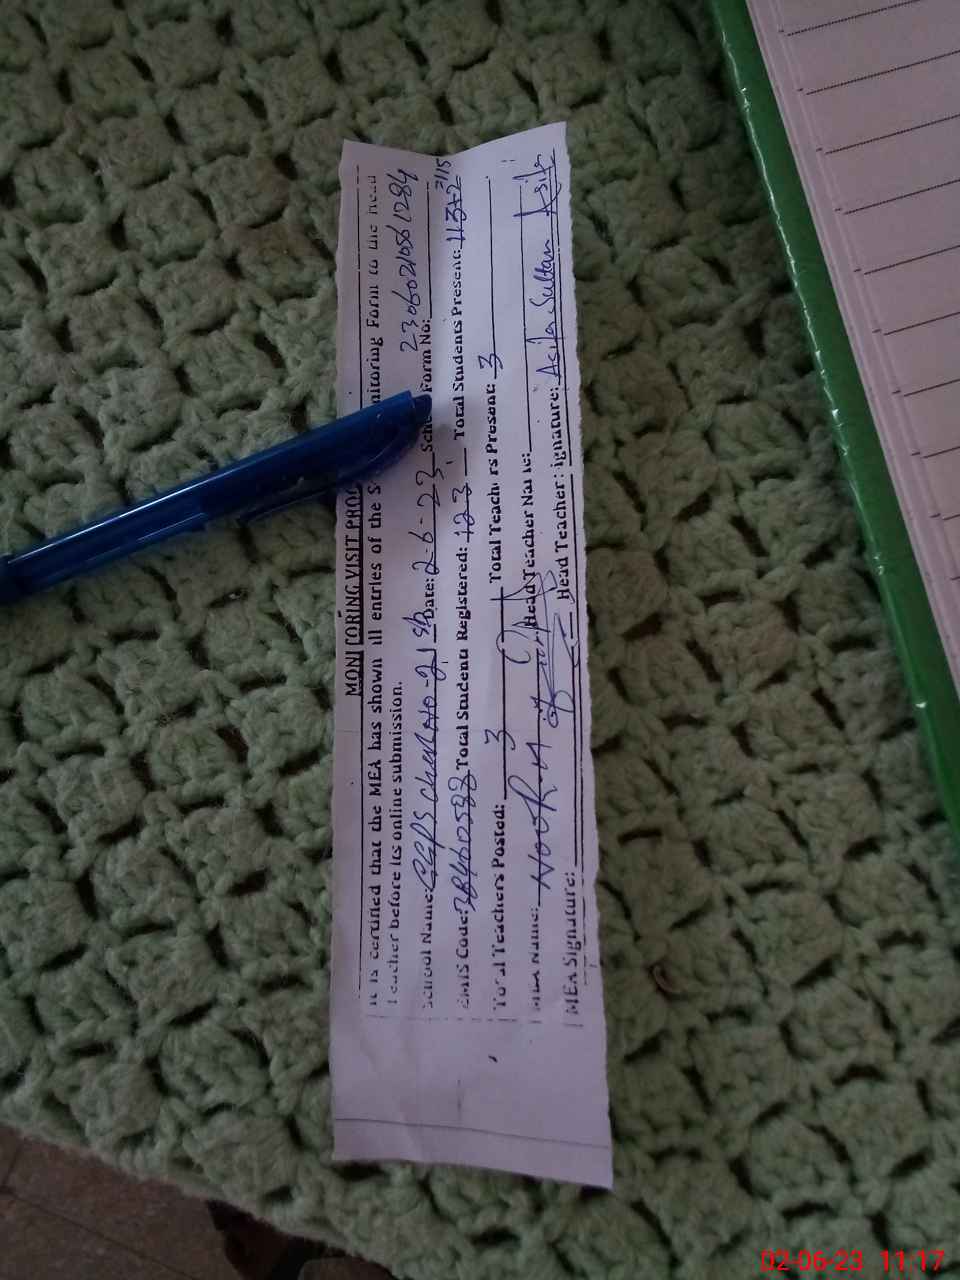 MONITORING VISIT PROO
It is certified that the MEA has shown all entries of the S nitoring Form to the head
Teacher before its online submission.
School Name: GGPS Chak No-21 sb Date: 2-6-23 Sch Form No: 2306021056 1284
EMIS Code: 38460588 Total Students Registered: 123 Total Students Present: 113+2 =115
Total Teachers Posted: 3 Total Teachers Present: 3
MEA Name: Head Teacher Name:
MEA Signature: Head Teacher Signature: Asifa Sultan Asifa
02-06-23 11:17